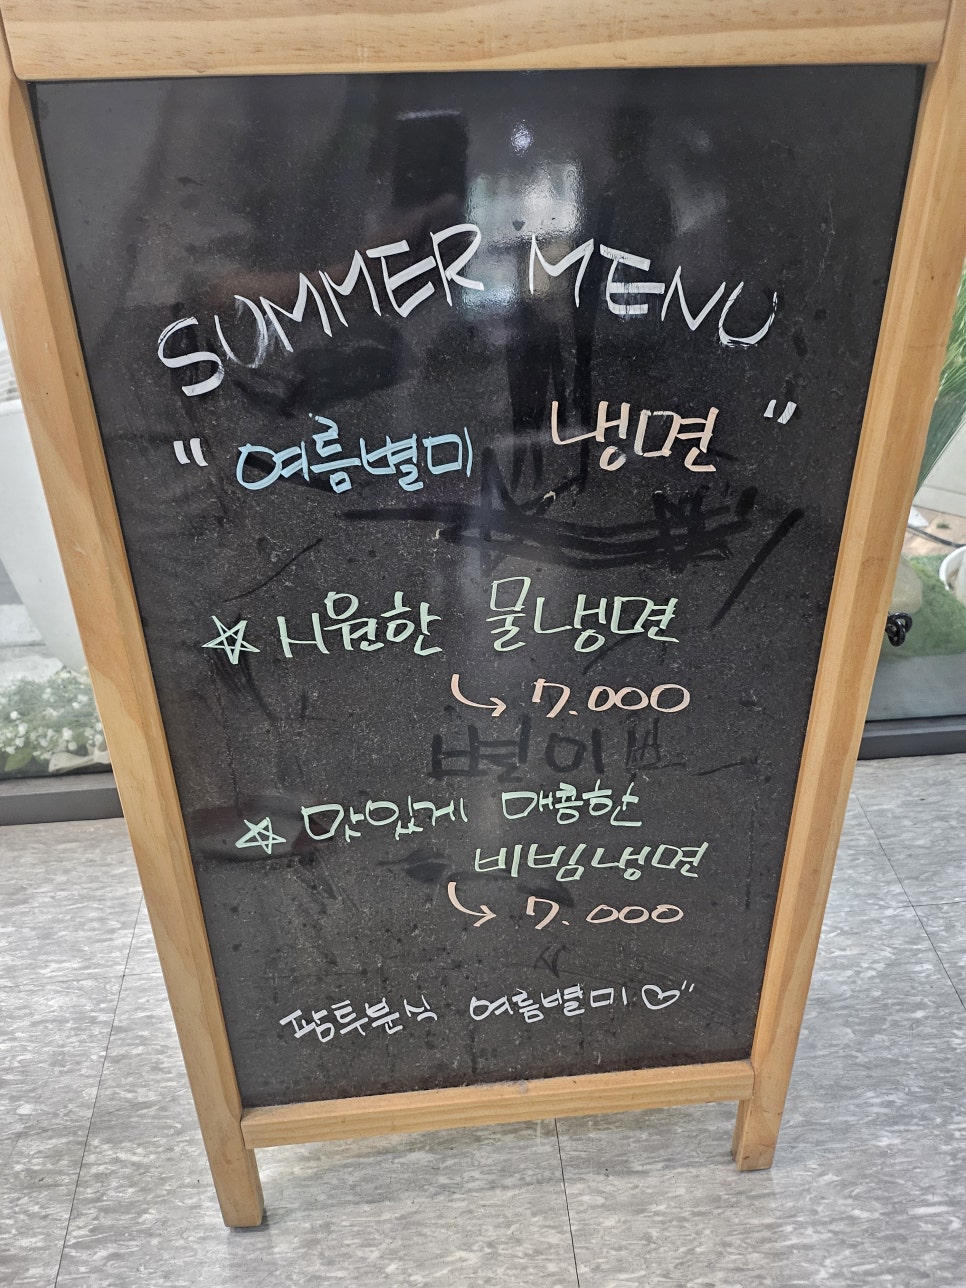 SUMMER MENU
" 여름별미 냉면 "
☆ 시원한 물냉면
↳ 7.000
☆ 맛있게 매콤한
비빔냉면
↳ 7.000
팜투분식 여름별미♡"